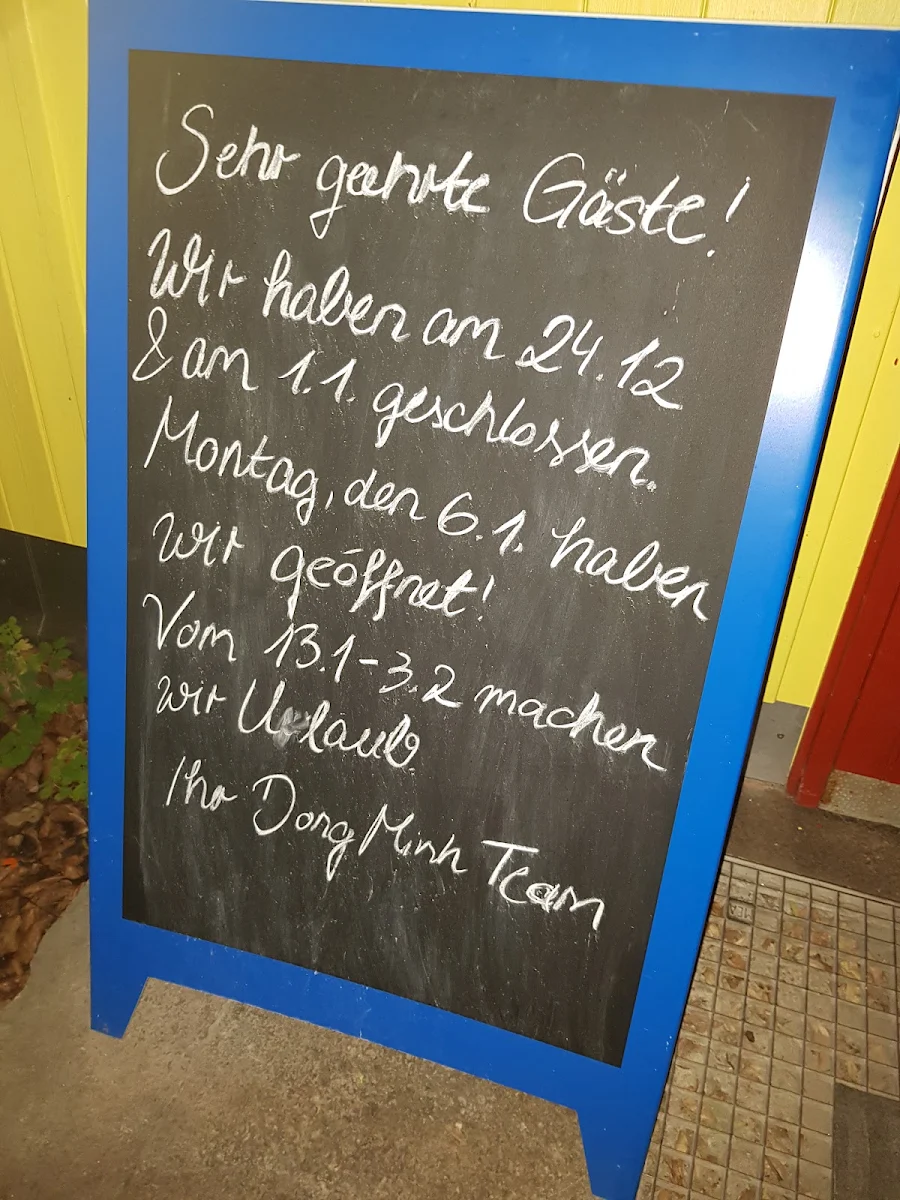 Sehr geehrte Gäste!
Wir haben am 24.12
& am 1.1. geschlossen.
Montag, den 6.1. haben
wir geöffnet!
Vom 13.1-3.2 machen
wir Urlaub
Ihr Dong Minh Team